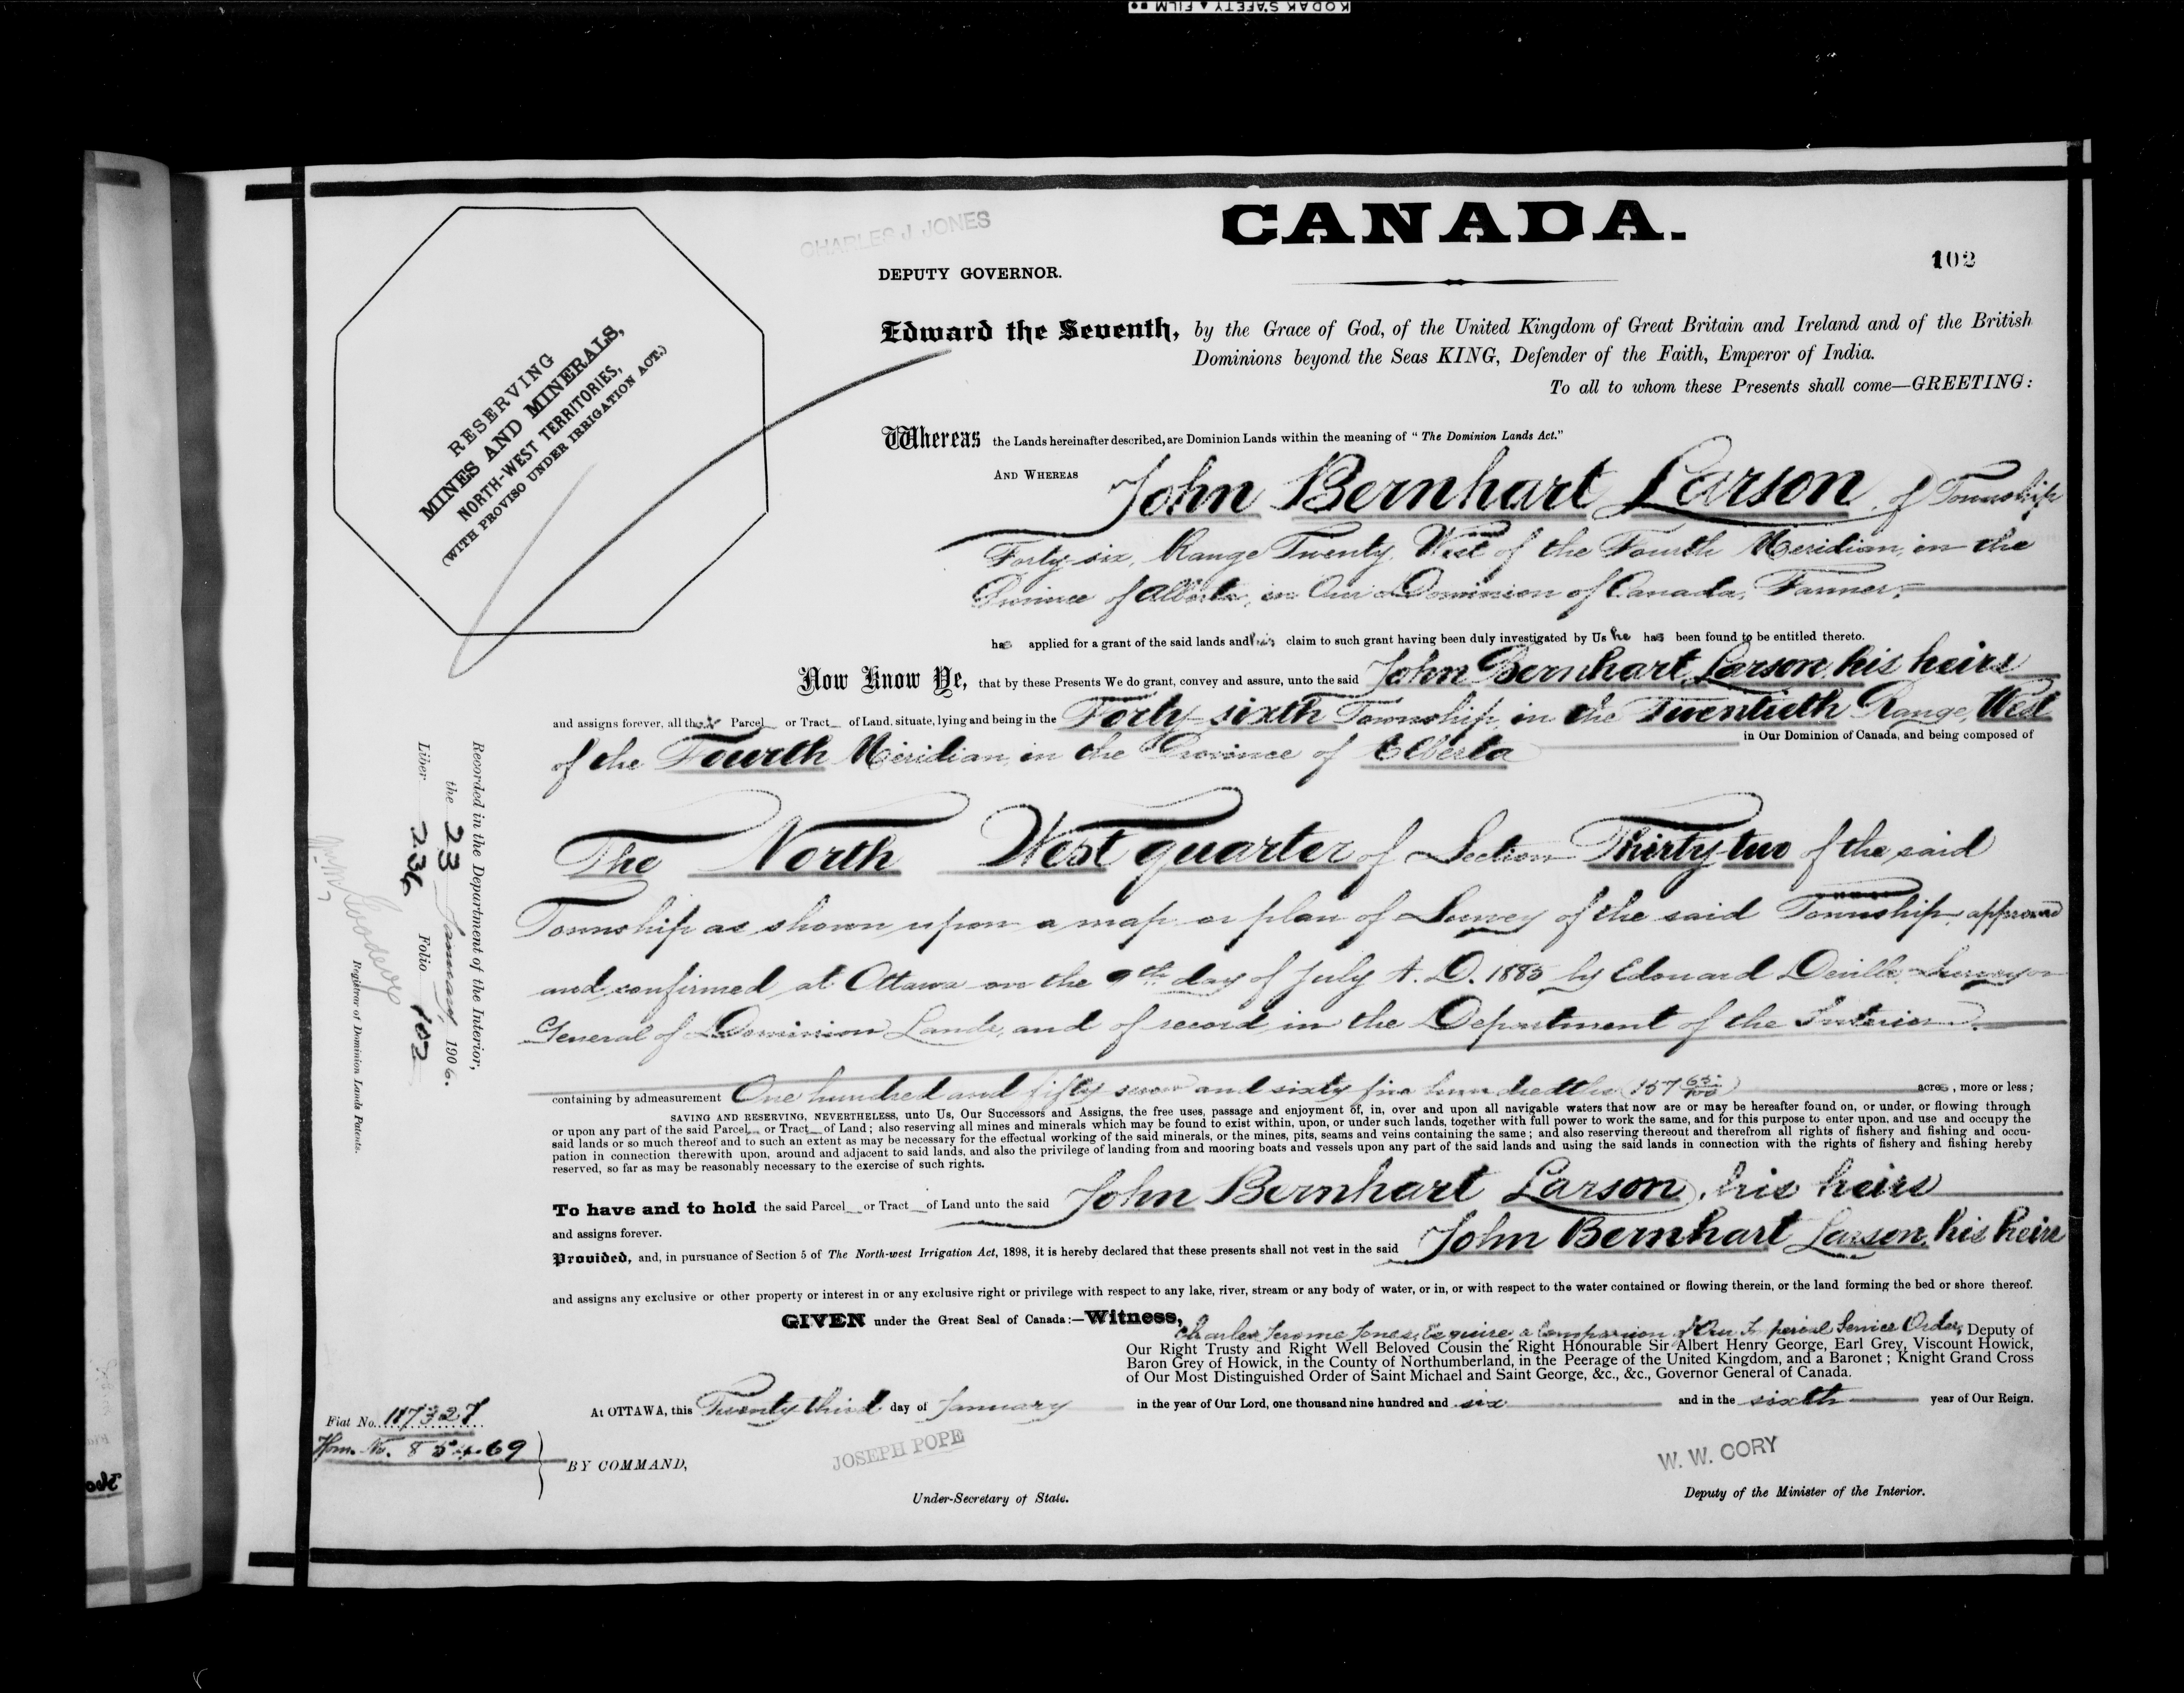 KODAK SAFETY FILM
CANADA.
102
CHARLES J. JONES
DEPUTY GOVERNOR.
RESERVING
MINES AND MINERALS,
NORTH-WEST TERRITORIES,
(WITH PROVISO UNDER IRRIGATION ACT.)
Edward the Seventh, by the Grace of God, of the United Kingdom of Great Britain and Ireland and of the British
Dominions beyond the Seas KING, Defender of the Faith, Emperor of India.
To all to whom these Presents shall come—GREETING:
Whereas the Lands hereinafter described, are Dominion Lands within the meaning of "The Dominion Lands Act."
AND WHEREAS John Bernhart Larson of Township
Forty-six, Range Twenty, West of the Fourth Meridian, in the
Province of Alberta, in Our Dominion of Canada, Farmer,
has applied for a grant of the said lands and his claim to such grant having been duly investigated by Us he has been found to be entitled thereto.
Now Know Ye, that by these Presents We do grant, convey and assure, unto the said John Bernhart Larson, his heirs
and assigns forever, all that Parcel or Tract of Land, situate, lying and being in the Forty-sixth Township, in the Twentieth Range, West
of the Fourth Meridian, in the Province of Alberta in Our Dominion of Canada, and being composed of
The North West quarter of Section Thirty-two of the said
Township as shown upon a map or plan of Survey of the said Township, approved
and confirmed at Ottawa on the 9th day of July A. D. 1885 by Edouard Deville Surveyor
General of Dominion Lands, and of record in the Department of the Interior.
containing by admeasurement One hundred and fifty seven and sixty five hundredths (157 65/100) acres, more or less;
SAVING AND RESERVING, NEVERTHELESS, unto Us, Our Successors and Assigns, the free uses, passage and enjoyment of, in, over and upon all navigable waters that now are or may be hereafter found on, or under, or flowing through
or upon any part of the said Parcel or Tract of Land; also reserving all mines and minerals which may be found to exist within, upon, or under such lands, together with full power to work the same, and for this purpose to enter upon, and use and occupy the
said lands or so much thereof and to such an extent as may be necessary for the effectual working of the said minerals, or the mines, pits, seams and veins containing the same; and also reserving thereout and therefrom all rights of fishery and fishing and occu-
pation in connection therewith upon, around and adjacent to said lands, and also the privilege of landing from and mooring boats and vessels upon any part of the said lands and using the said lands in connection with the rights of fishery and fishing hereby
reserved, so far as may be reasonably necessary to the exercise of such rights.
To have and to hold the said Parcel or Tract of Land unto the said John Bernhart Larson, his heirs
and assigns forever.
Provided, and, in pursuance of Section 5 of The North-west Irrigation Act, 1898, it is hereby declared that these presents shall not vest in the said John Bernhart Larson, his heirs
and assigns any exclusive or other property or interest in or any exclusive right or privilege with respect to any lake, river, stream or any body of water, or in, or with respect to the water contained or flowing therein, or the land forming the bed or shore thereof.
GIVEN under the Great Seal of Canada:—Witness, Charles Jerome Jones, Esquire, a Companion of Our Imperial Service Order, Deputy of
Our Right Trusty and Right Well Beloved Cousin the Right Honourable Sir Albert Henry George, Earl Grey, Viscount Howick,
Baron Grey of Howick, in the County of Northumberland, in the Peerage of the United Kingdom, and a Baronet; Knight Grand Cross
of Our Most Distinguished Order of Saint Michael and Saint George, &c., &c., Governor General of Canada.
At OTTAWA, this Twenty third day of January in the year of Our Lord, one thousand nine hundred and six and in the sixth year of Our Reign.
Fiat No. 117327
Hom. No. 85469
BY COMMAND,
JOSEPH POPE
Under-Secretary of State.
W. W. CORY
Deputy of the Minister of the Interior.
Recorded in the Department of the Interior,
the 23 January, 1906.
Liber 236 Folio 102
Registrar of Dominion Lands Patents.